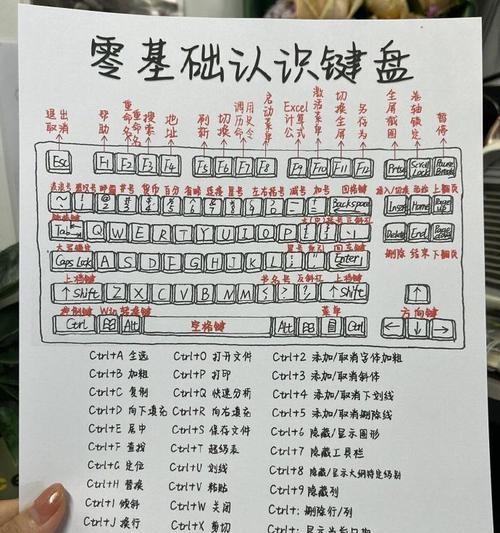 零基础认识键盘
退出取消 帮助 重命名 搜索 地址 刷新 切换 调用历史命令 启动菜单 Excel计算公式 激活菜单 切换全屏 另存为 全屏截图 卷轴锁定 暂停
Esc F1 F2 F3 F4 F5 F6 F7 F8 F9 F10 F11 F12 Prtsc Scroll Lock Pause Break
井号 货币 百分 省略 连接 星号 左右括号 减号 加号 回格键 插入/切换 上翻页
~ ! @ # $ % ^ & * ( ) Backspace Insert Home Page up
Tab Q W E R T Y U I O P { } Delete End Page down
大写键 回车键 删除 结束 下翻页
Caps Lock A S D F G H J K L Enter
上档键 书名号 上档键
↑ Shift Z X C V B N M < > ? ↑ Shift ↑
控制键 Win 转换键 空格键 菜单 方向键
Ctrl Alt Alt Ctrl ← ↓ →
Ctrl+A 全选 Ctrl+O 打开文件 Ctrl+2 添加/取消字体加粗
Ctrl+B 加粗 Ctrl+P 打印 Ctrl+3 添加/取消斜体
Ctrl+C 复制 Ctrl+Q 快速分析 Ctrl+4 添加/取消下划线
Ctrl+D 向下填充 Ctrl+R 向右填充 Ctrl+5 添加/取消删除线
Ctrl+E 居中 Ctrl+S 保存文件 Ctrl+6 隐藏/显示图形
Ctrl+F 查找 Ctrl+T 超级表 Ctrl+7 隐藏工具栏
Ctrl+G 定位 Ctrl+U 划线 Ctrl+8 隐藏/显示大纲特定级别
Ctrl+H 替换 Ctrl+V 粘贴 Ctrl+9 隐藏列
Ctrl+I 倾斜 Ctrl+W 关闭 Ctrl+: 删除行/列
Ctrl+J 换行 Ctrl+X 剪切 Ctrl+; 显示当前日期